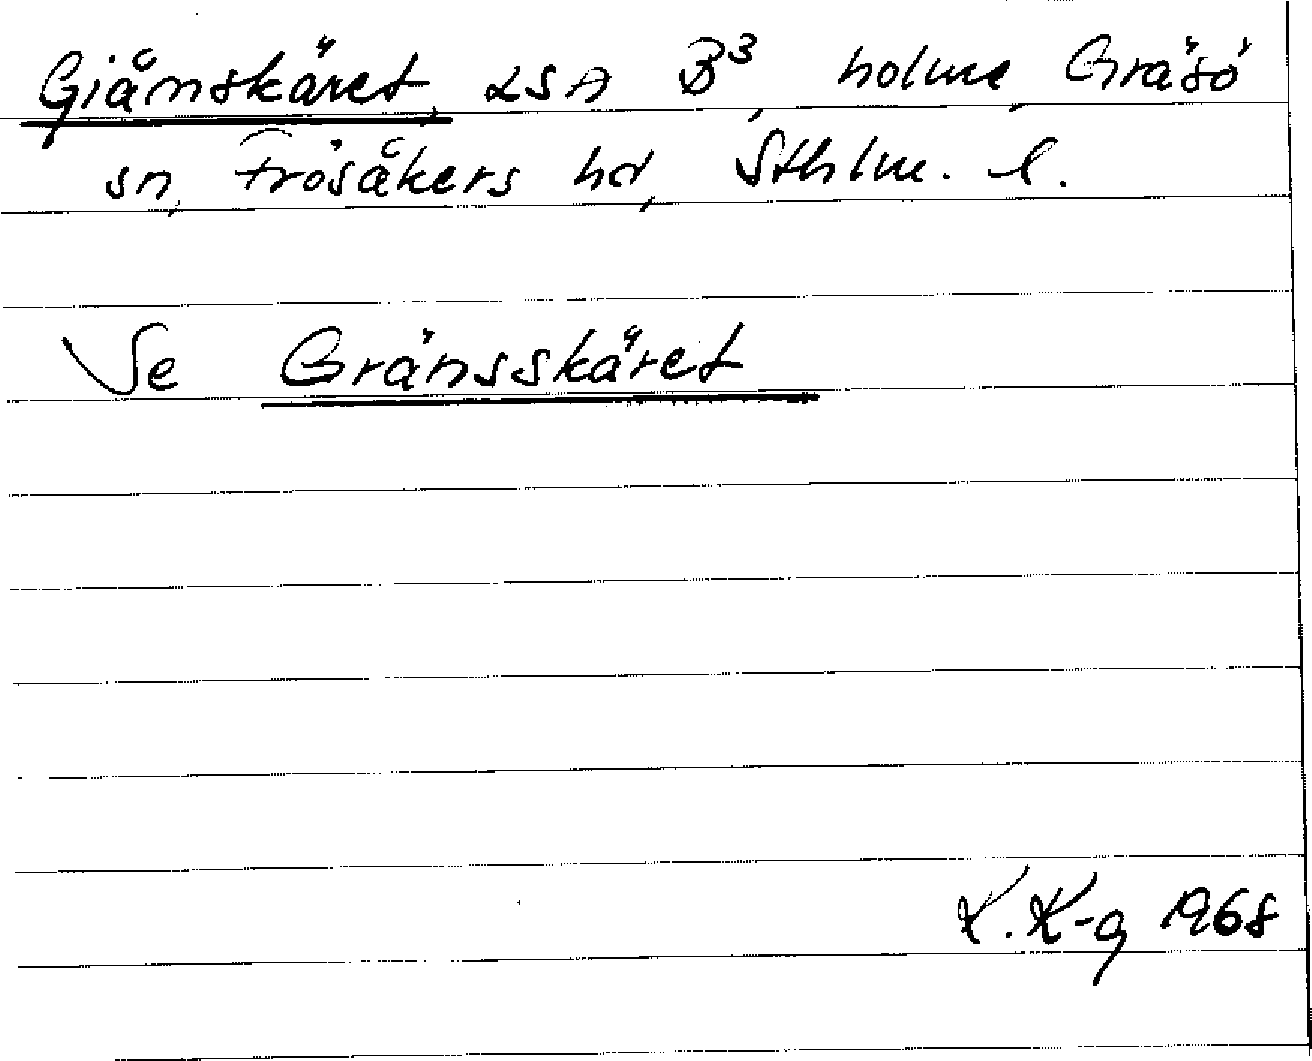 Gjånskäret, LSA B³, holme, Gräsö
sn, Frösåkers hd, Sthlm. l.
Se Gränsskäret
K. K-g 1968